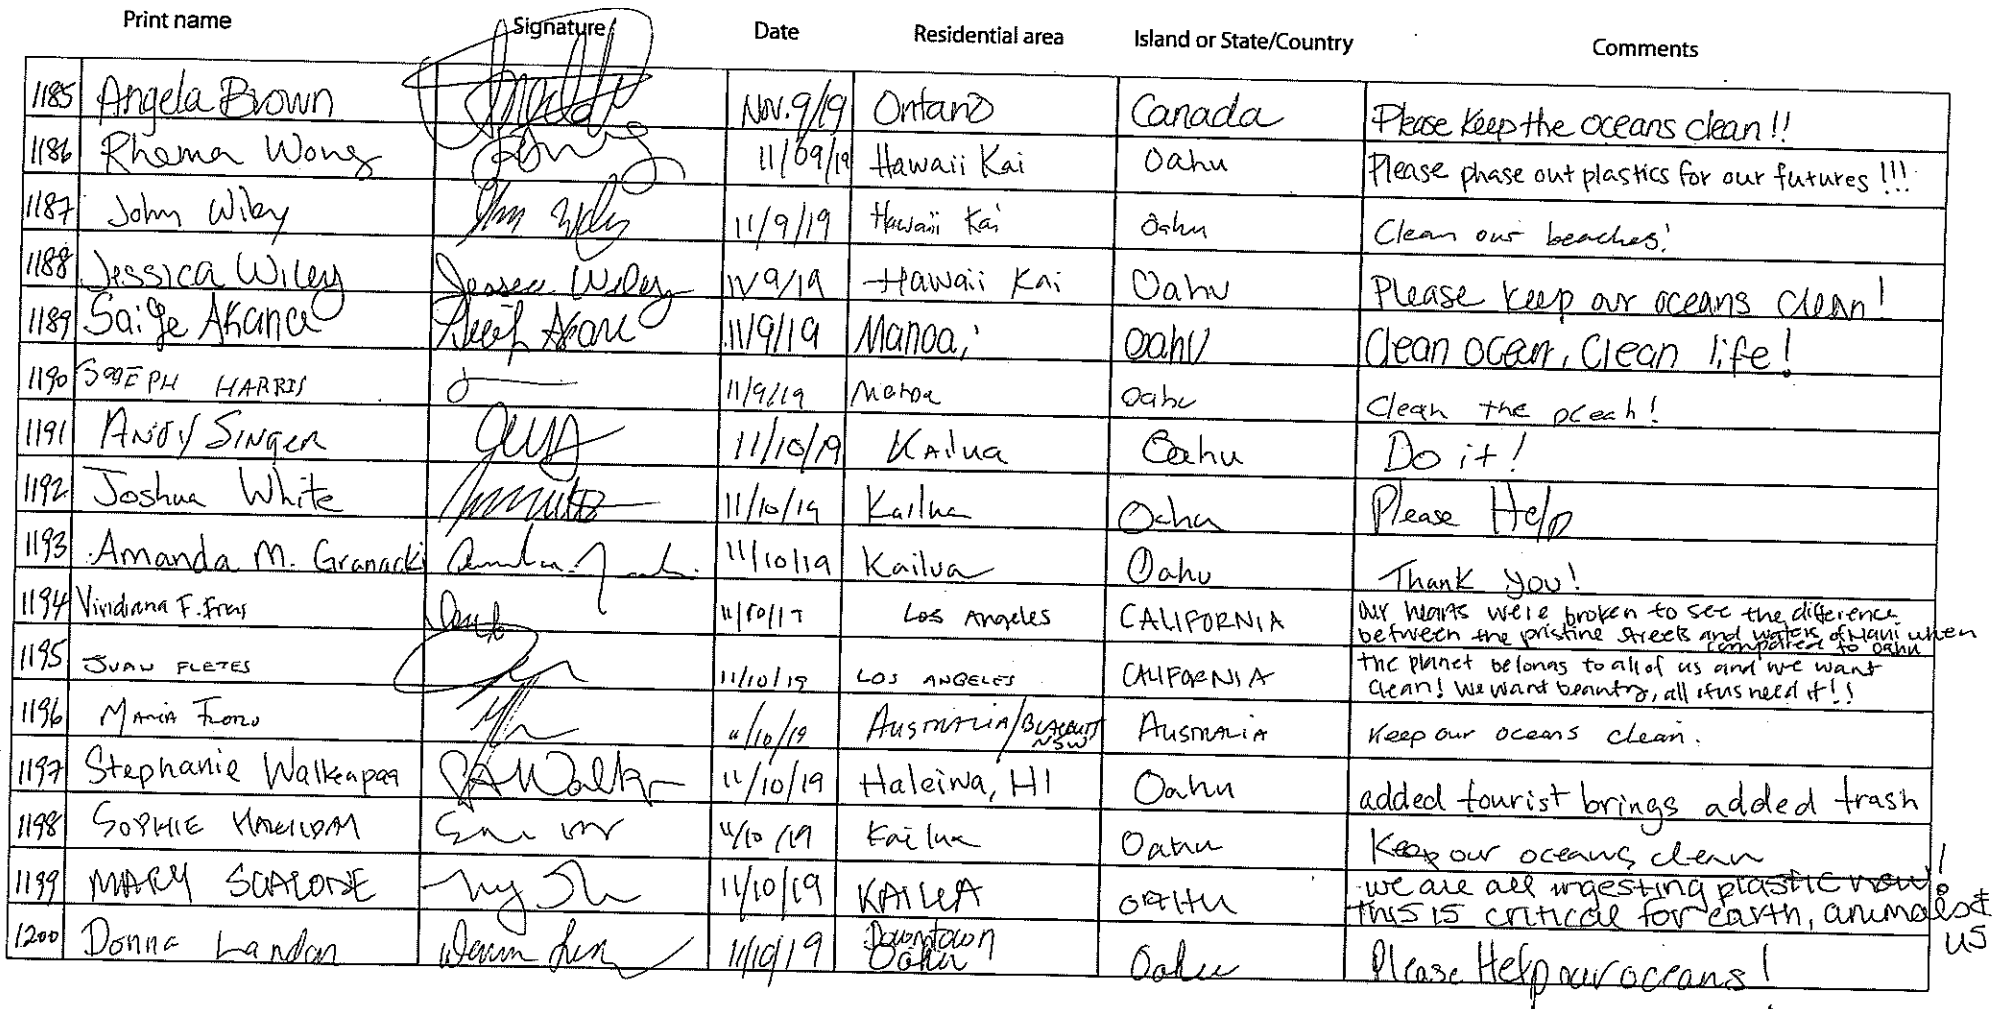 Print name Signature Date Residential area Island or State/Country Comments
1185 Angela Brown Nov. 9/19 Ontario Canada Please Keep the oceans clean!!
1186 Rhema Wong 11/09/19 Hawaii Kai Oahu Please phase out plastics for our futures!!!
1187 John Wiley 11/9/19 Hawaii Kai Oahu Clean our beaches!
1188 Jessica Wiley Jessica Wiley 11/9/19 Hawaii Kai Oahu Please keep our oceans clean!
1189 Saige Akana 11/9/19 Manoa, Oahu Clean ocean, Clean life!
1190 JOSEPH HARRIS 11/9/19 Manoa Oahu Clean the
1191 ANDY SINGER 11/10/19 KAilua Oahu Do it!
1192 Joshua White 11/10/19 Kailua Oahu Please Help
1193 Amanda M. Granacki 11/10/19 Kailua Oahu Thank you!
1194 Viridiana F. 11/10/17 Los Angeles CALIFORNIA our hearts were broken to see the difference
between the pristine streets and waters of Maui when
compared to oahu
1195 JUAN FLETES 11/10/19 LOS ANGELES CALIFORNIA the planet belongs to all of us and we want
clean! We want beauty, all of us need it!!
1196 MARIA 11/10/19 AUSTRALIA/ NSW AUSTRALIA Keep our oceans clean.
1197 Stephanie Walkeapaa 11/10/19 Haleiwa, HI Oahu added tourist brings added trash
1198 SOPHIE 11/10/19 Kailua Oahu Keep our oceans clean
1199 MARY SCALONE 11/10/19 KAILUA OAHU we are all ingesting plastic now!
this is critical for earth, animals &
us
1200 Donna Landan 11/10/19 Downtown Oahu Oahu Please Help our oceans!